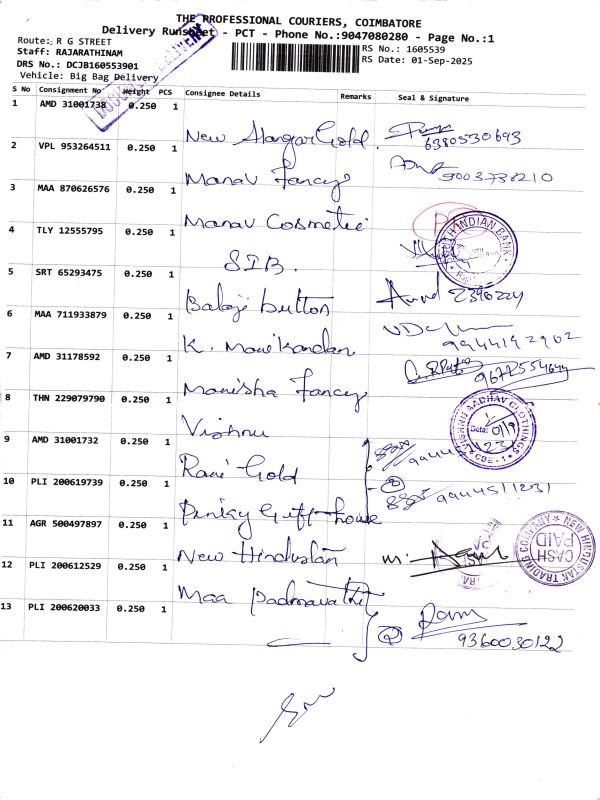 THE PROFESSIONAL COURIERS, COIMBATORE
Delivery Runsheet - PCT - Phone No.:9047080280 - Page No.:1
Route: R G STREET
Staff: RAJARATHINAM
RS No.: 1605539
DRS No.: DCJB160553901
RS Date: 01-Sep-2025
Vehicle: Big Bag Delivery
DELIVERY
S No Consignment No Weight PCS Consignee Details Remarks Seal & Signature
1 AMD 31001738 0.250 1 New Alangar Gold 6380530693
2 VPL 953264511 0.250 1 Manav Fancy 9003738210
3 MAA 870626576 0.250 1 Manav Cosmetic
4 TLY 12555795 0.250 1 SIB. INDIAN BANK
5 SRT 65293475 0.250 1 Balaji button 2396224
6 MAA 711933879 0.250 1 K. Manikandan 9944192902
7 AMD 31178592 0.250 1 Manisha Fancy
8 THN 229079790 0.250 1 Vishnu VISHNU AADHAV CLOTHINGS Date: CBE - 1
9 AMD 31001732 0.250 1 Rani Gold
10 PLI 200619739 0.250 1 Pinky Gift house 9944511231
11 AGR 500497897 0.250 1 New Hindustan NEW HINDUSTAN TRADING COMPANY CASH PAID
12 PLI 200612529 0.250 1 Maa Padmavathi
13 PLI 200620033 0.250 1 9360030122